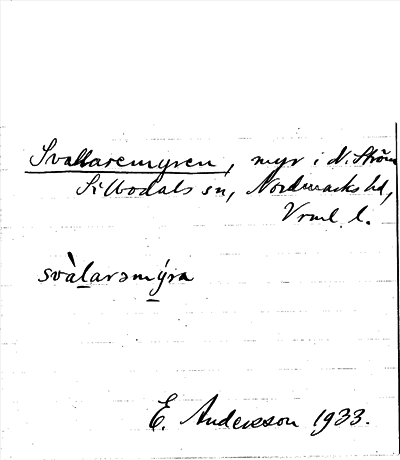 Svallaremyren, myr i N. Ström
Silbodals sn, Nordmarks hd,
Vrml. l.
svàlarəmýra
E. Andersson 1933.